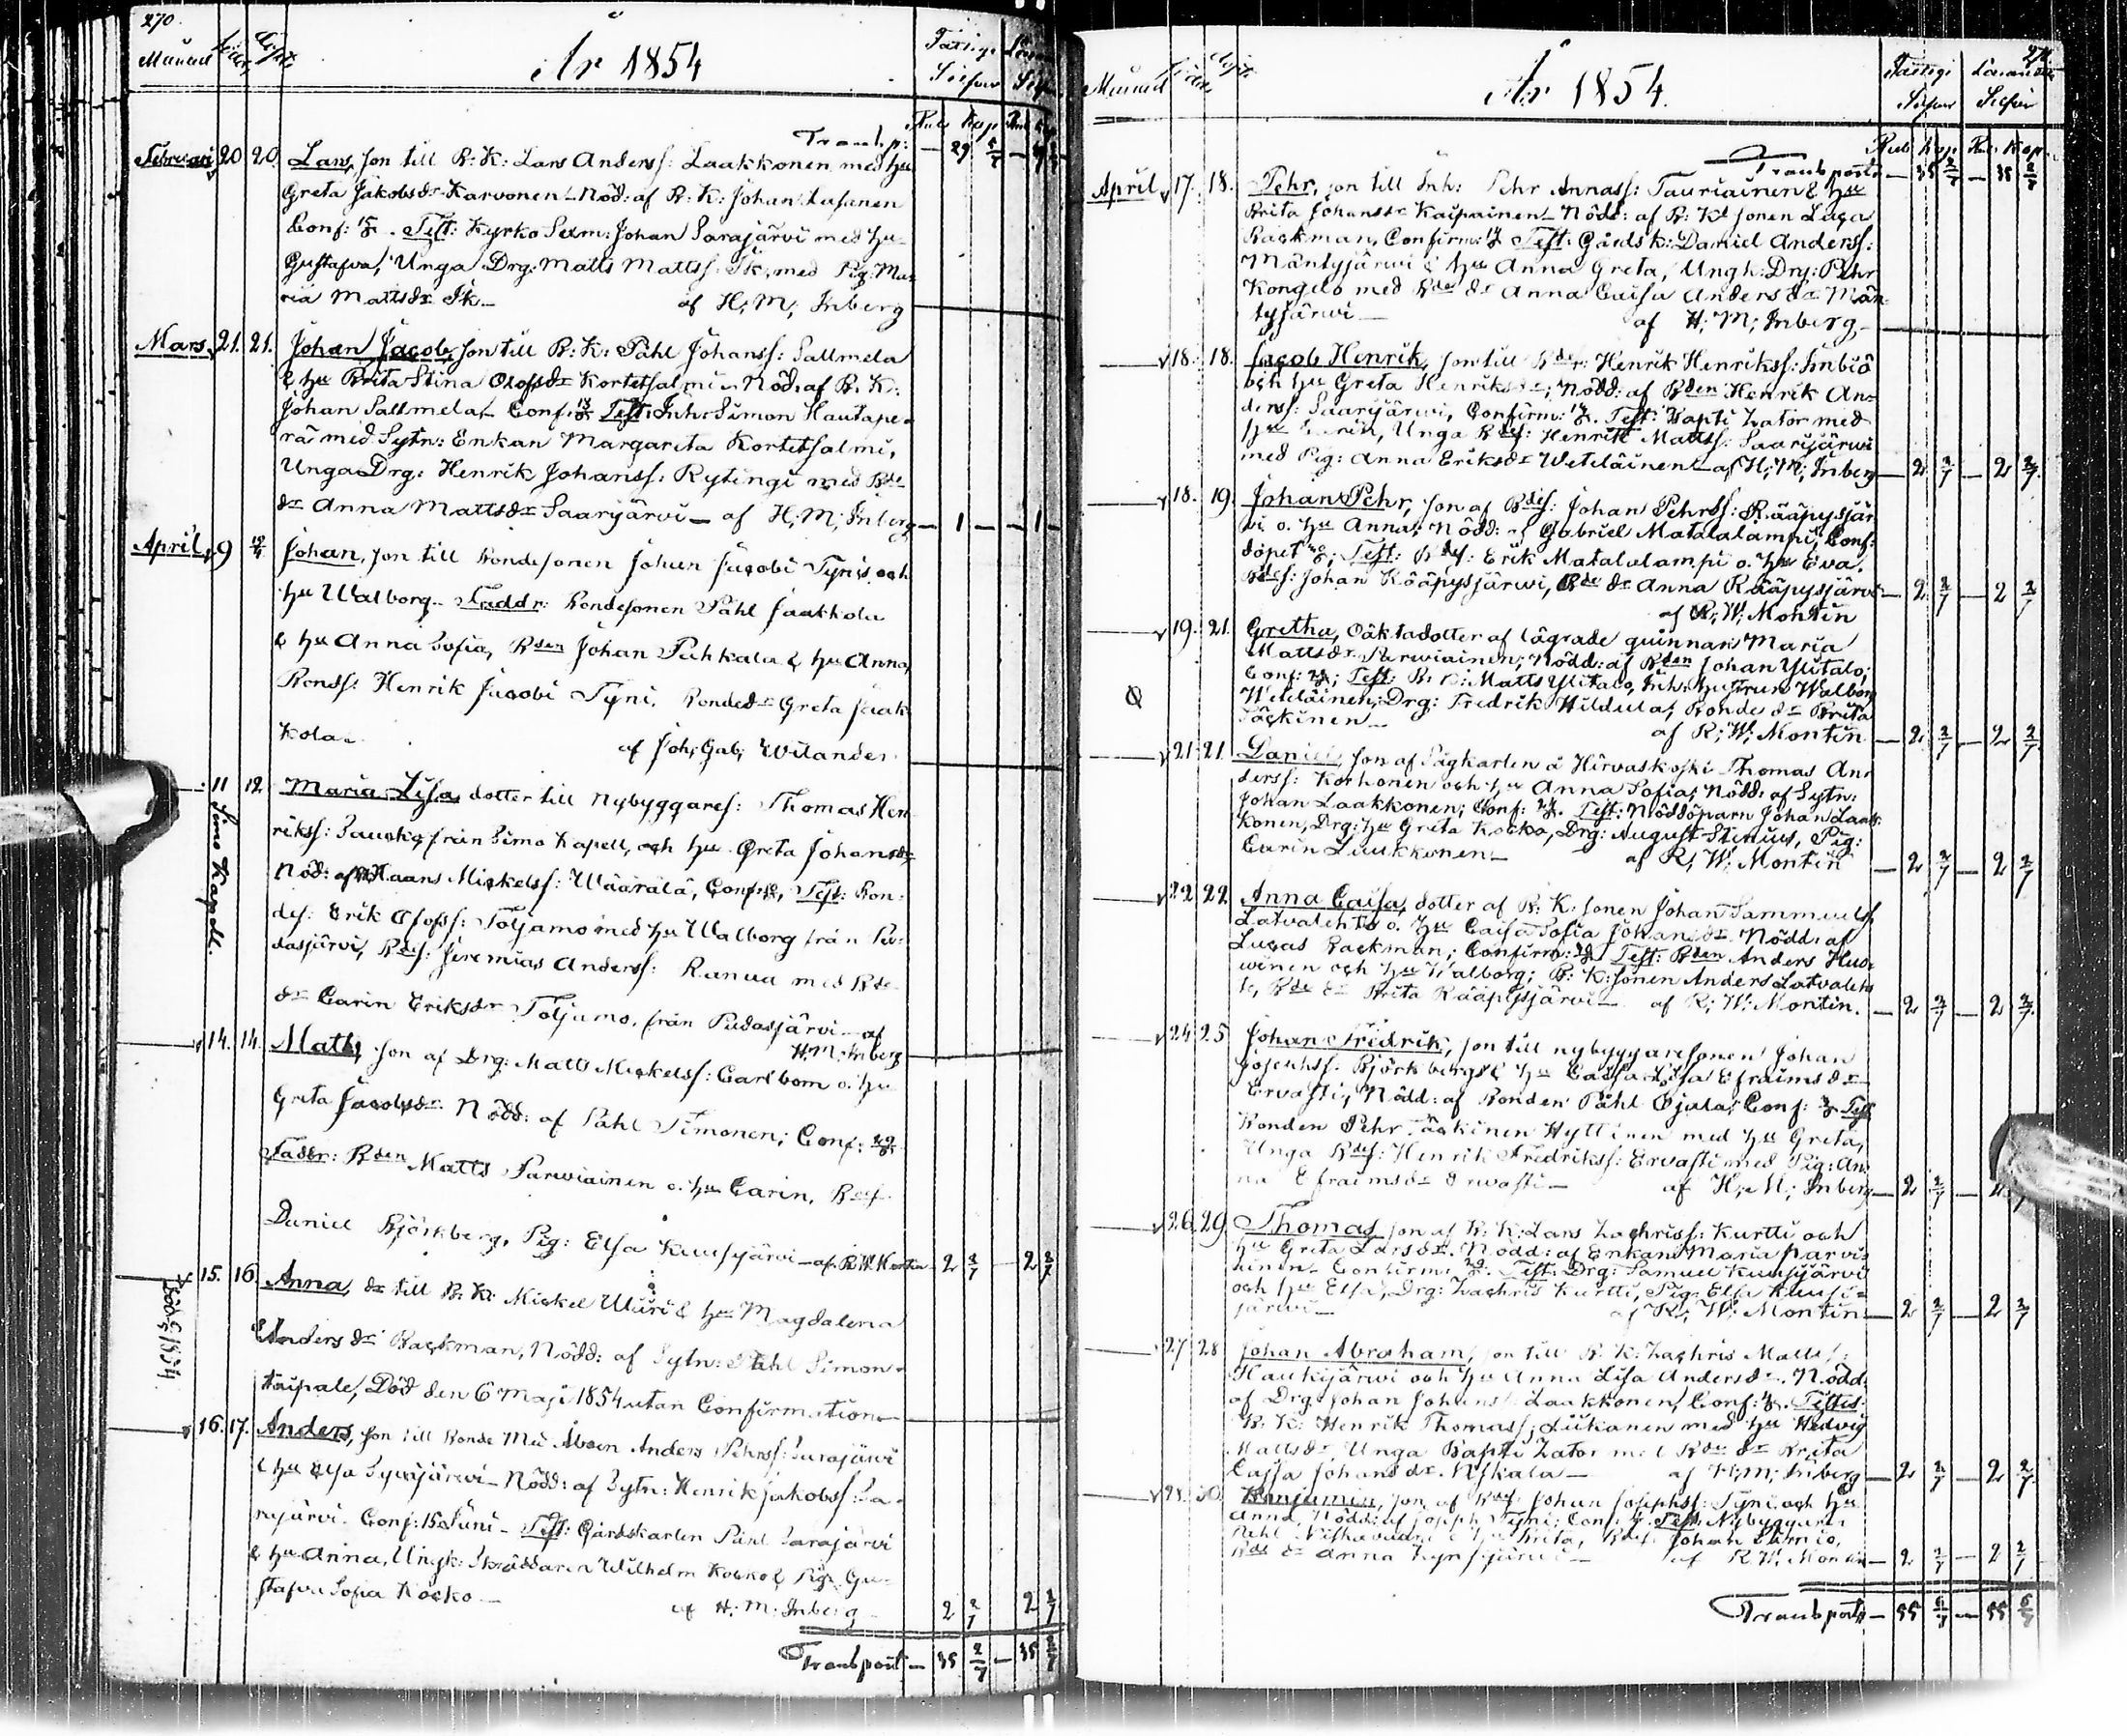 270.
Månad
År 1854
Fattige Silfver
Rub. Kop. Rub. Kop.
Transp: — 29 — 29
Februari 20 20. Lars, son till B: K: Lars Anderss: Laakkonen med hu
Greta Jakobsdr Karvonen — Nöd: af B: K: Johan
Conf: Test: Kyrko Sexm: Johan Sarajärvi med hu
Gustafva, Unga Drg: Matts Mattss: Ik, med Pig: Ma-
ria Mattsdr Ik — af H; M; Inberg
Mars 21. 21. Johan Jacob, son till B: K: Påhl Johanss: Sallmela
& hu Brita Stina Olofsdr Kortetsalmi — Nöd: af B: K:
Johan Sallmela — Conf: Test: Inh: Simon Hautape-
rä med Sytn: Enkan Margareta Kortetsalmi,
Unga Drg: Henrik Johanss: Rytingi med Bde
dr Anna Mattsdr Saarijärvi — af H; M; Inberg — 1 — — 1 —
April 9 Johan, son till Bondesonen Johan Jacobi Tyni och
hu Walborg — Faddr: Bondesonen Påhl Jaakkola
& hu Anna Sofia, Bden Johan Pahkala & hu Anna,
Bondss: Henrik Jacobi Tyni, Bondedr Greta Jaak-
kola — af Joh; Gab; Wilander
11 12. Maria Lisa, dotter till Nybyggares: Thomas Hen-
Simo Kapell.
rikss: från Simo Kapell, och hu Greta Johansdr
Nöd: af Haans Mickelss: Wäärälä, Conf: Test: Bon-
des: Erik Olofss: Toljamo med hu Walborg från Pu-
dasjärvi, Bdes: Jeremias Anderss: Ranua med Bde
dr Carin Eriksdr Toljamo, från Pudasjärvi — af
H; M; Inberg
14. 14. Matts, son af Drg: Matts Mickelss: Carlbom o. hu
Greta Jacobsdr. Nödd: af Påhl Simonen; Conf:
Faddr: Bden Matts Parwiainen o. hu Carin, Bdes:
Daniel Björkberg, Pig: Elsa Kuusijärvi — af R W Montin 2 2/7 2 2/7
15. 16. Anna, dr till B: K: Mickel & hu Magdalena
Död 6/5 1854.
Andersdr Backman, Nödd: af Sytn: Påhl Simon-
taipale, Död den 6 Maji 1854 utan Confirmation —
16. 17. Anders, son till Bonde Anders Pehrss: Sarajärvi
& hu Elsa — Nödd: af Sytn: Henrik Jakobss: Sa-
rajärvi. Conf: 15 Juni — Test: Gårdskarlen Påhl Sarajärvi
& hu Anna, Ungk: Skräddaren Wilhelm Kocko & Pig: Gu-
stafva Sofia Kocko — af H: M: Inberg 2 2/7 2 2/7
Transport — 35 2/7 — 35 2/7
Månad
År 1854.
Fattige Silfver
Silfver
Rub. Kop. Rub. Kop.
Transport — 35 2/7 — 35 2/7
April 17. 18. Pehr, son till Inh: Pehr Annass: Tauriainen & hu
Brita Johansdr Kaipainen — Nödd: af B: K sonen Luca
Backman, Confirm: Test: Gårdsk: Daniel Anderss:
Mäntyjärwi & hu Anna Greta, Ungk: Drg: Pehr
Kongelo med Bde dr Anna Caisa Andersdr Män-
tyjärwi — af H; M; Inberg —
18. 18. Jacob Henrik, son till Henrik Henrikss: Simbiö
och hu Greta Henriksdr; Nödd: af Bden Henrik An-
derss: Saarijärwi, Confirm: Test: Bapti Zator med
hu Unga Bdes: Henrik Mattss: Saarijärwi
med Pig: Anna Eriksdr Weteläinen — af H; M; Inberg — 2 2/7 — 2 2/7
18. 19. Johan Pehr, son af Bdes: Johan Pehrss: Rääpysjär-
vi o. hu Anna; Nödd: af Gabriel Matalalampi, Conf:
döpet Test: Bdes: Erik Matalalampi o. hu Eva.
Bdes: Johan Rääpysjärwi, Bde dr Anna Rääpysjärwi — 2 2/7 — 2 2/7
af R; W; Montin
19. 21. Gretha, Oäkta dotter af lägrade quinnan Maria
Mattsdr Parwiainen; Nödd: af Bden Johan Ylitalo;
Conf: Test: B: K: Matts Ylitalo, Inh: hustrun Walborg
Weteläinen, Drg: Fredrik Hildula, Bonde dr Brita
Säckinen — af R; W; Montin — 2 2/7 — 2 2/7
21 21. Daniel, son af Sågkarlen å Hirvaskoski Thomas An-
derss: Korhonen och hu Anna Sofia; Nödd: af Sytn:
Johan Laakkonen; Conf: Test: Nöddöparn Johan Laak-
konen, Drg: hu Greta Kocko, Drg: August Stenius, Pig:
Carin Laukkonen — af R; W; Montin — 2 2/7 — 2 2/7
22 22 Anna Caisa, dotter af B: K: sonen Johan Sammuelss
Latvalehto o. hu Caisa Sofia Johansdr. Nödd: af
Lucas Backman; Confirm: Test: Bden Anders Huo-
winen och hu Walborg; B: K: sonen Anders Latvaleh-
to, Bde dr Brita Rääpysjärvi — af R; W: Montin. — 2 2/7 — 2 2/7
24 25 Johan Fredrik, son till nybyggaresonen Johan
Josephss: Björkberg & hu Caisa Lisa Efraimsdr
Ervasti; Nödd: af Bonden Påhl Ojala; Conf: Test
Bonden Pehr Säckinen Hyttinen med hu Greta,
Unga Bdes: Henrik Fredrikss: Ervasti med Pig: An-
na Efraimsdr Ervasti — af H; M; Inberg — 2 2/7 — 2
26 29. Thomas, son af B: K: Lars Zachriss: Kurtti och
hu Greta Larsdr. Nödd: af Enkan Maria Parvi-
ainen — Confirm: Test: Drg: Samuel Kuusijärvi
och hu Elsa, Drg: Zachris Kurtti, Pig: Elsa Kuusi-
järwi — af R; W; Montin — 2 2/7 — 2 2/7
27 28 Johan Abraham, son till B: K: Zachris Mattss:
Haukijärwi och hu Anna Lisa Andersdr. Nödd:
af Drg: Johan Johanss: Laakkonen, Conf: Testes:
B: K: Henrik Thomass; Liikanen med hu Hedvig
Mattsdr, Unga Bapti Zator med Bde dr Brita
Cajsa Johansdr. Niskala — af H; M; Inberg — 2 2/7 — 2 2/7
28. 30. Benjamin, son af Bdes: Johan Josephss: Tyni och hu
Anna, Nödd: af Joseph Tyni; Conf: Test: Nybyggaren
Pehl & hu Brita, Bdes: Johan
Bde dr Anna — af R W. Montin — 2 2/7 — 2 2/7
Transport — 55 6/7 — 55 6/7